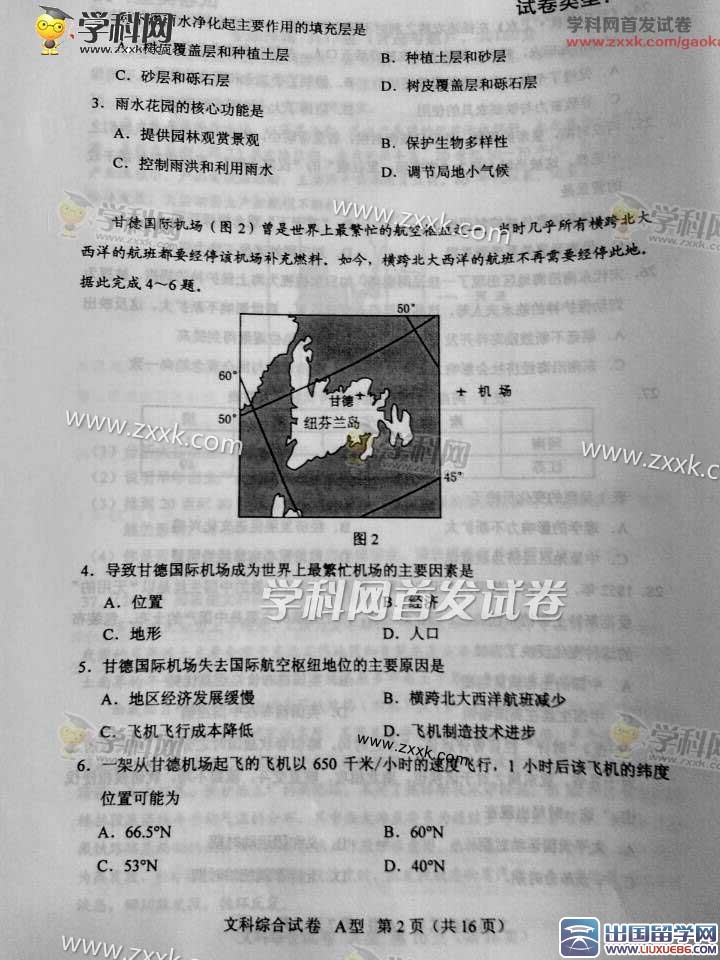 试卷类型:
雨水净化起主要作用的填充层是
www.zxxk.com/gaoka
学科网
树皮覆盖层和种植土层
B. 种植土层和砂层
C. 砂层和砾石层
D. 树皮覆盖层和砾石层
3. 雨水花园的核心功能是
A. 提供园林观赏景观
B. 保护生物多样性
C. 控制雨洪和利用雨水
D. 调节局地小气候
甘德国际机场(图2)曾是世界上最繁忙的航空
时几乎所有横跨北大
西洋的航班都要经停该机场补充燃料。如今,横跨北大西洋的航班不再需要经停此地。
据此完成4~6题。
50°
60°
甘德
+ 机场
50°
纽芬兰岛
45°
www.zxxk.com
图2
4. 导致甘德国际机场成为世界上最繁忙机场的主要因素是
学科网首发试卷
A. 位置
B. 经济
C. 地形
D. 人口
5. 甘德国际机场失去国际航空枢纽地位的主要原因是
A. 地区经济发展缓慢
B. 横跨北大西洋航班减少
C. 飞机飞行成本降低
D. 飞机制造技术进步
6. 一架从甘德机场起飞的飞机以 650 千米/小时的速度飞行,1 小时后该飞机的纬度
位置可能为
A. 66.5°N
B. 60°N
C. 53°N
D. 40°N
文科综合试卷 A型 第2页(共16页)
出国留学网
www.liuxue86.com